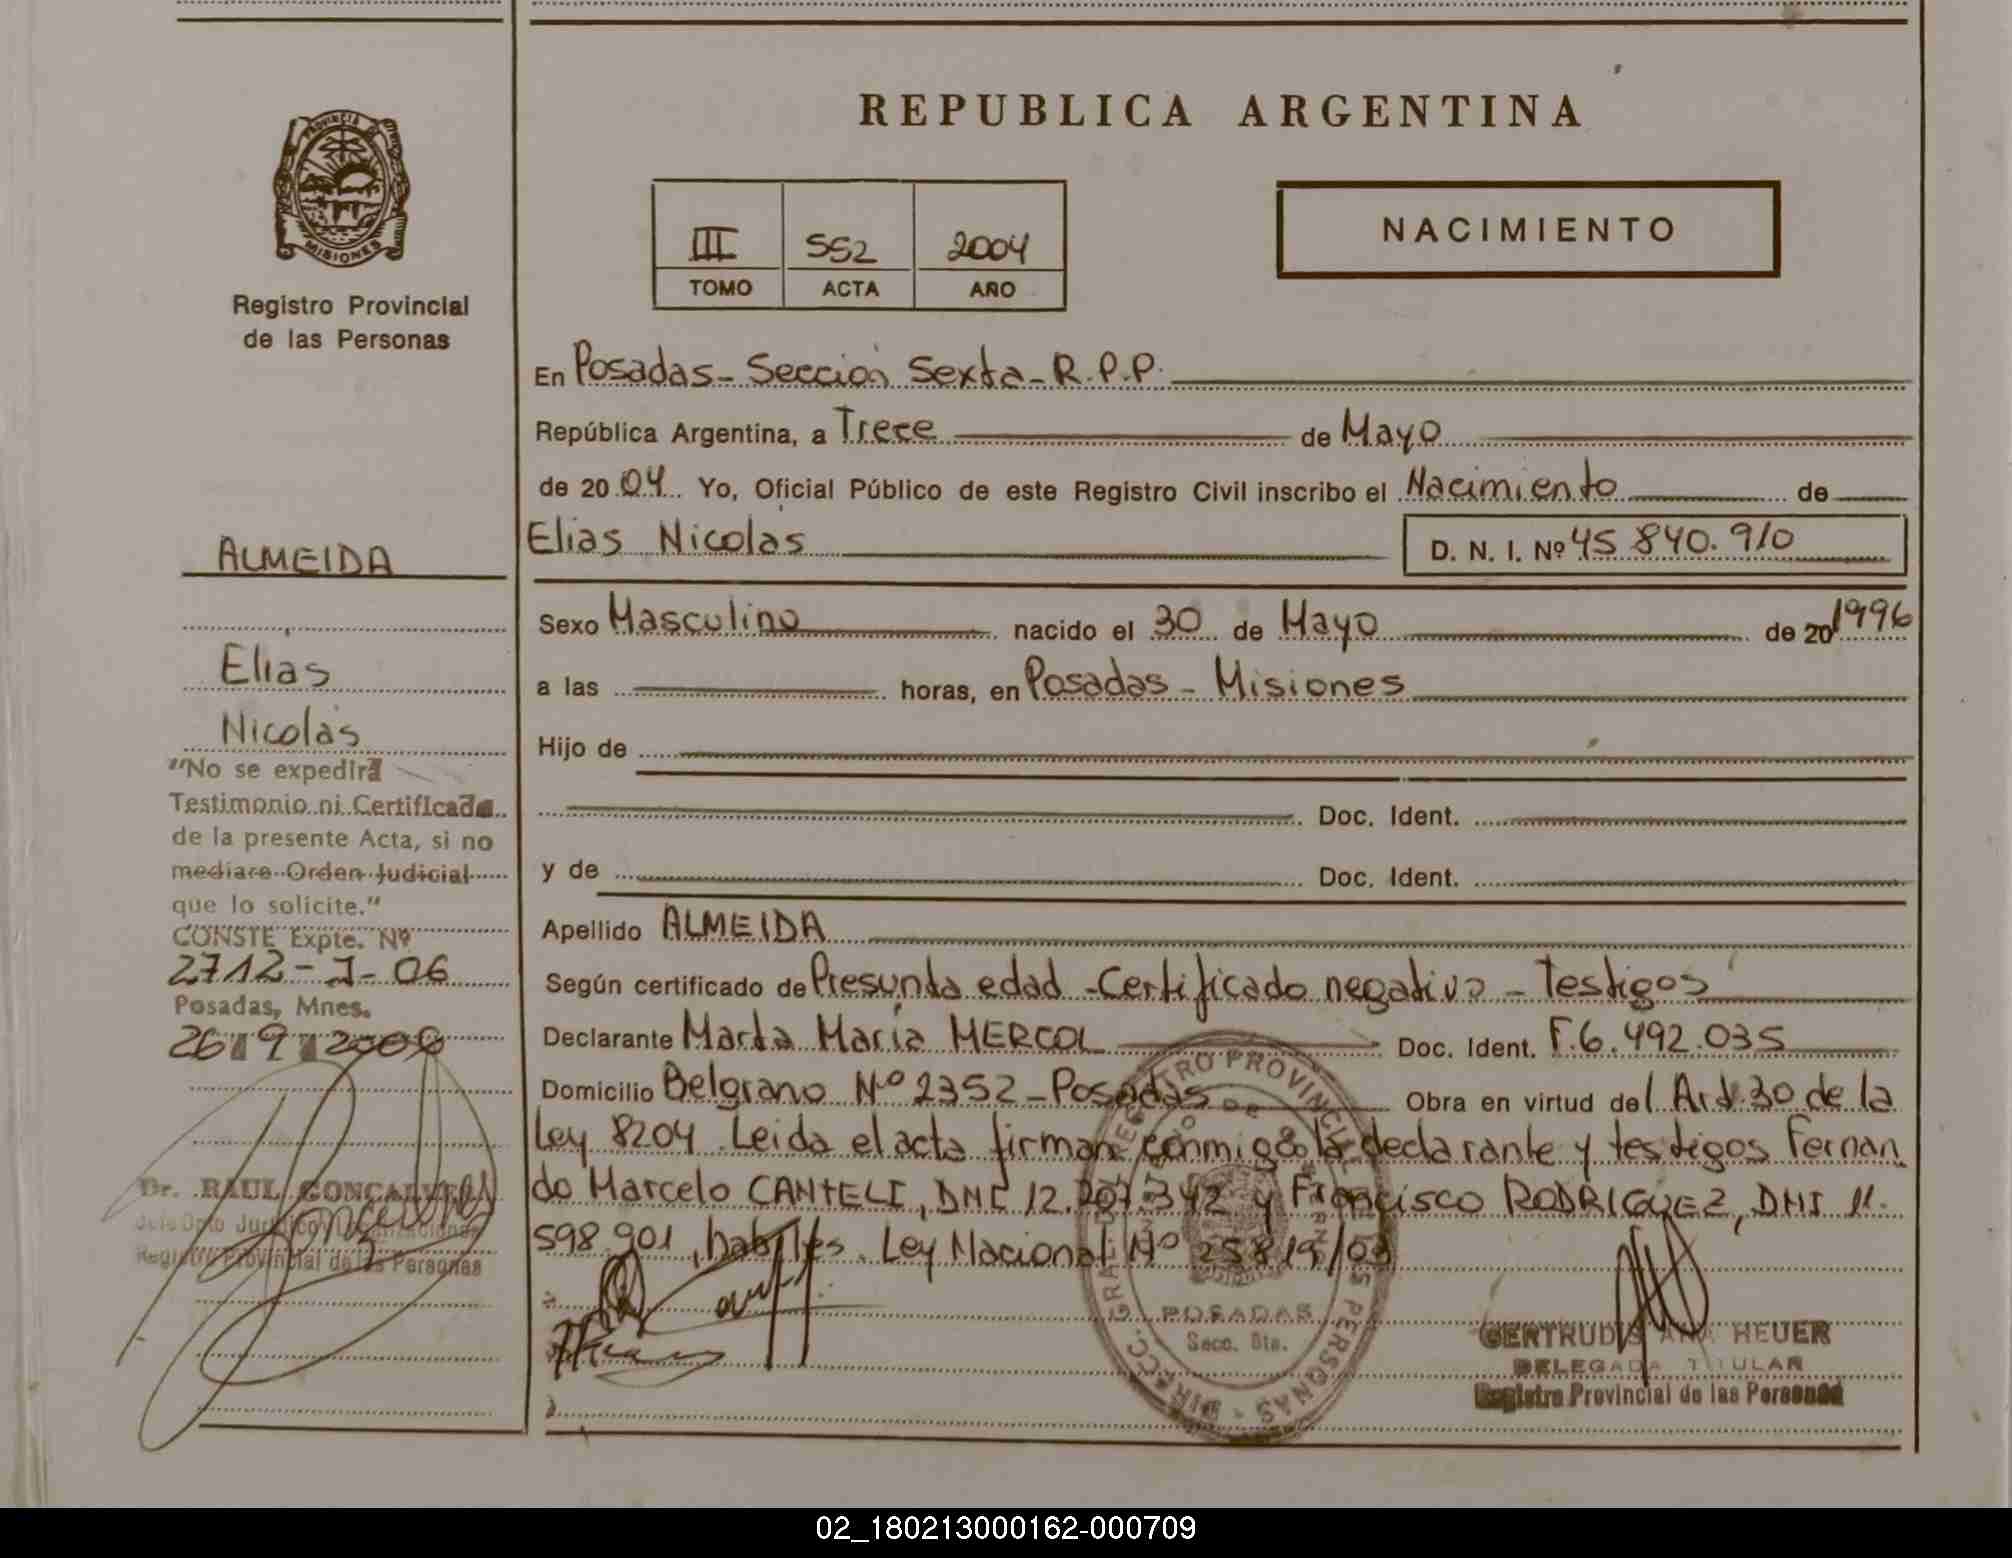 PROVINCIA DE
MISIONES
Registro Provincial
de las Personas
ALMEIDA
Elias
Nicolás
"No se expedirá
Testimonio ni Certificado
de la presente Acta, si no
mediare Orden Judicial
que lo solicite."
CONSTE Expte. Nº
2712-J-06
Posadas, Mnes.
26 9 2006
Dr. RAUL GONCALVES
Registro Provincial de las Personas
REPUBLICA ARGENTINA
III 552 2004
TOMO ACTA AÑO
NACIMIENTO
En Posadas - Sección Sexta - R.P.P.
República Argentina, a Trece de Mayo
de 20 04 Yo, Oficial Público de este Registro Civil inscribo el Nacimiento de
Elias Nicolás D. N. I. Nº 45 840.910
Sexo Masculino nacido el 30 de Mayo de 20 1996
a las horas, en Posadas - Misiones
Hijo de
Doc. Ident.
y de Doc. Ident.
Apellido ALMEIDA
Según certificado de Presunta edad - Certificado negativo - Testigos
Declarante Marta María MERCOL Doc. Ident. F.6.492.035
Domicilio Belgrano Nº 2352 - Posadas Obra en virtud del Art. 30 de la
Ley 8204. Leida el acta firman conmigo la declarante y testigos Fernan
do Marcelo CANTELI, DNI 12.207.342 y Francisco RODRIGUEZ, DNI 11.
598.901, habiles. Ley Nacional Nº 25819/03
POSADAS
Secc. 6ta.
GERTRUDIS ANA HEUER
DELEGADA TITULAR
Registro Provincial de las Personas
02_180213000162-000709